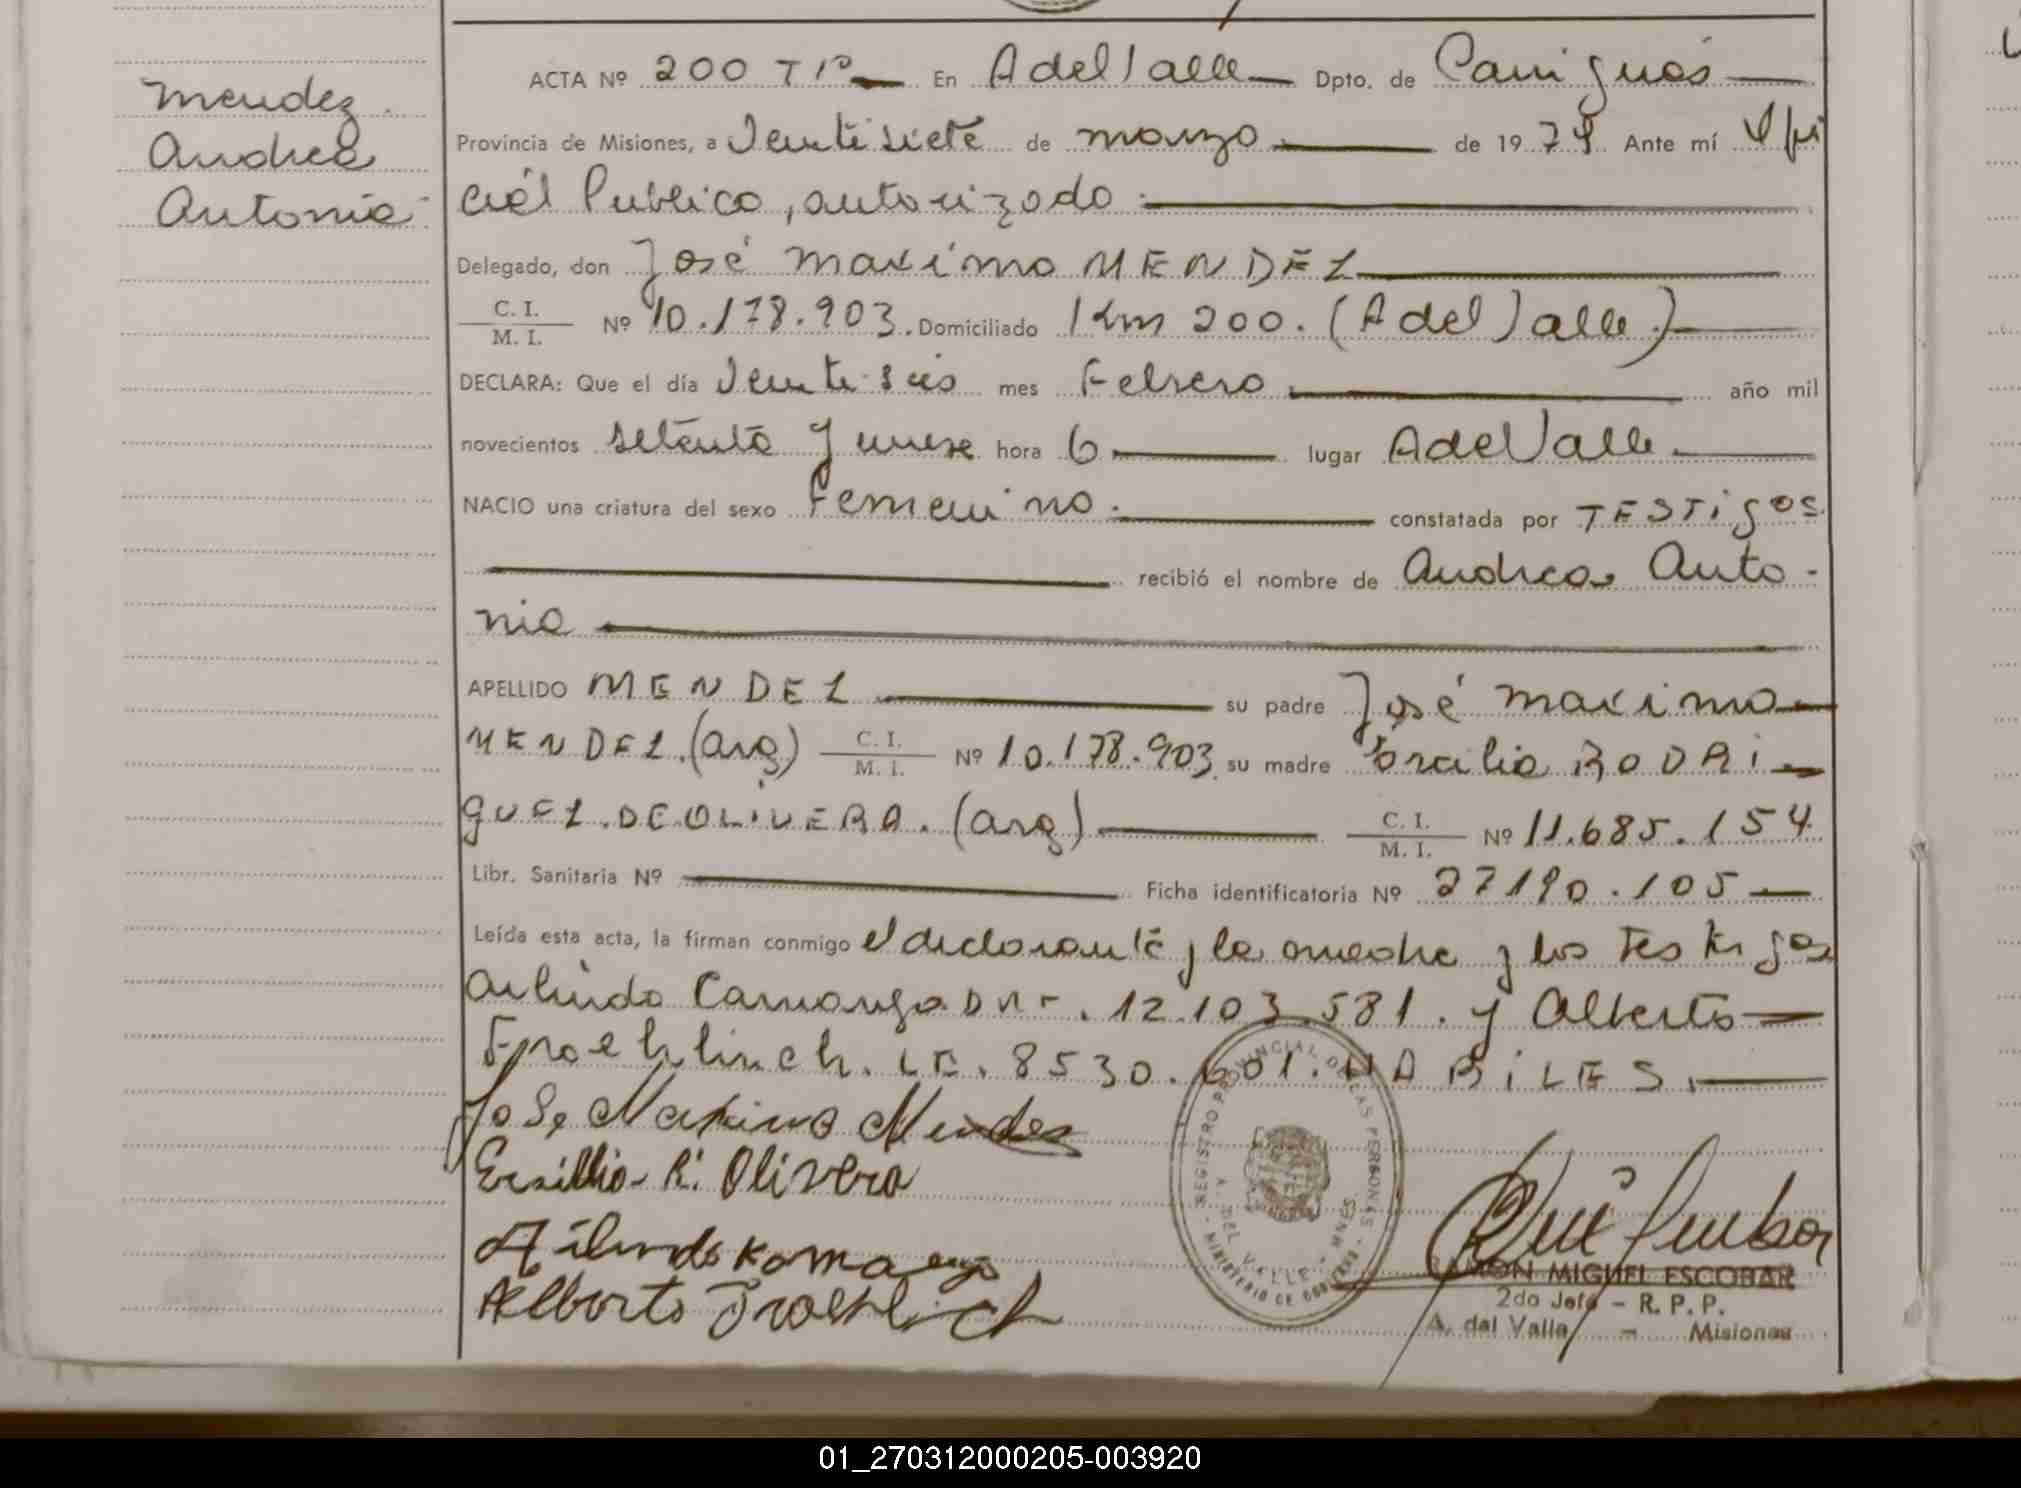 Mendez
Andrea
Antonia
ACTA Nº 200 Tº En A del Valle Dpto. de Cainguás
Provincia de Misiones, a Veintisiete de marzo de 1979 Ante mí Ofi
cial Publico, autorizado
Delegado, don José Maximo MENDEZ
C. I.
M. I. Nº 10.178.903. Domiciliado Km 200. (A del Valle)
DECLARA: Que el día Veintiseis mes Febrero año mil
novecientos setenta y nueve hora 6 lugar A del Valle
NACIO una criatura del sexo Femenino. constatada por TESTigos
recibió el nombre de Andrea Anto-
nia
APELLIDO MENDEZ su padre José Maximo
MENDEZ.(arg) C. I.
M. I. Nº 10.178.903 su madre RODRI
GUEZ.DEOLIVERA. (arg) C. I.
M. I. Nº 11.685.154
Libr. Sanitaria Nº Ficha identificatoria Nº 27190.105
Leída esta acta, la firman conmigo el declarante y la madre y los Testigos
Arlindo Camargo DNI. 12.103.581. y Alberto
Froehlinch. LE. 8530.601. HABiLES.
Jose Maximo Mendez
Ersillia R. Olivera
Arlindo Kamargo
Alberto Froehlich
REGISTRO PROVINCIAL DE LAS PERSONAS
A. DEL VALLE - MNES.
MINISTERIO DE GOBIERNO
RAMON MIGUEL ESCOBAR
2do Jefe - R. P. P.
A. del Valle - Misiones
01_270312000205-003920